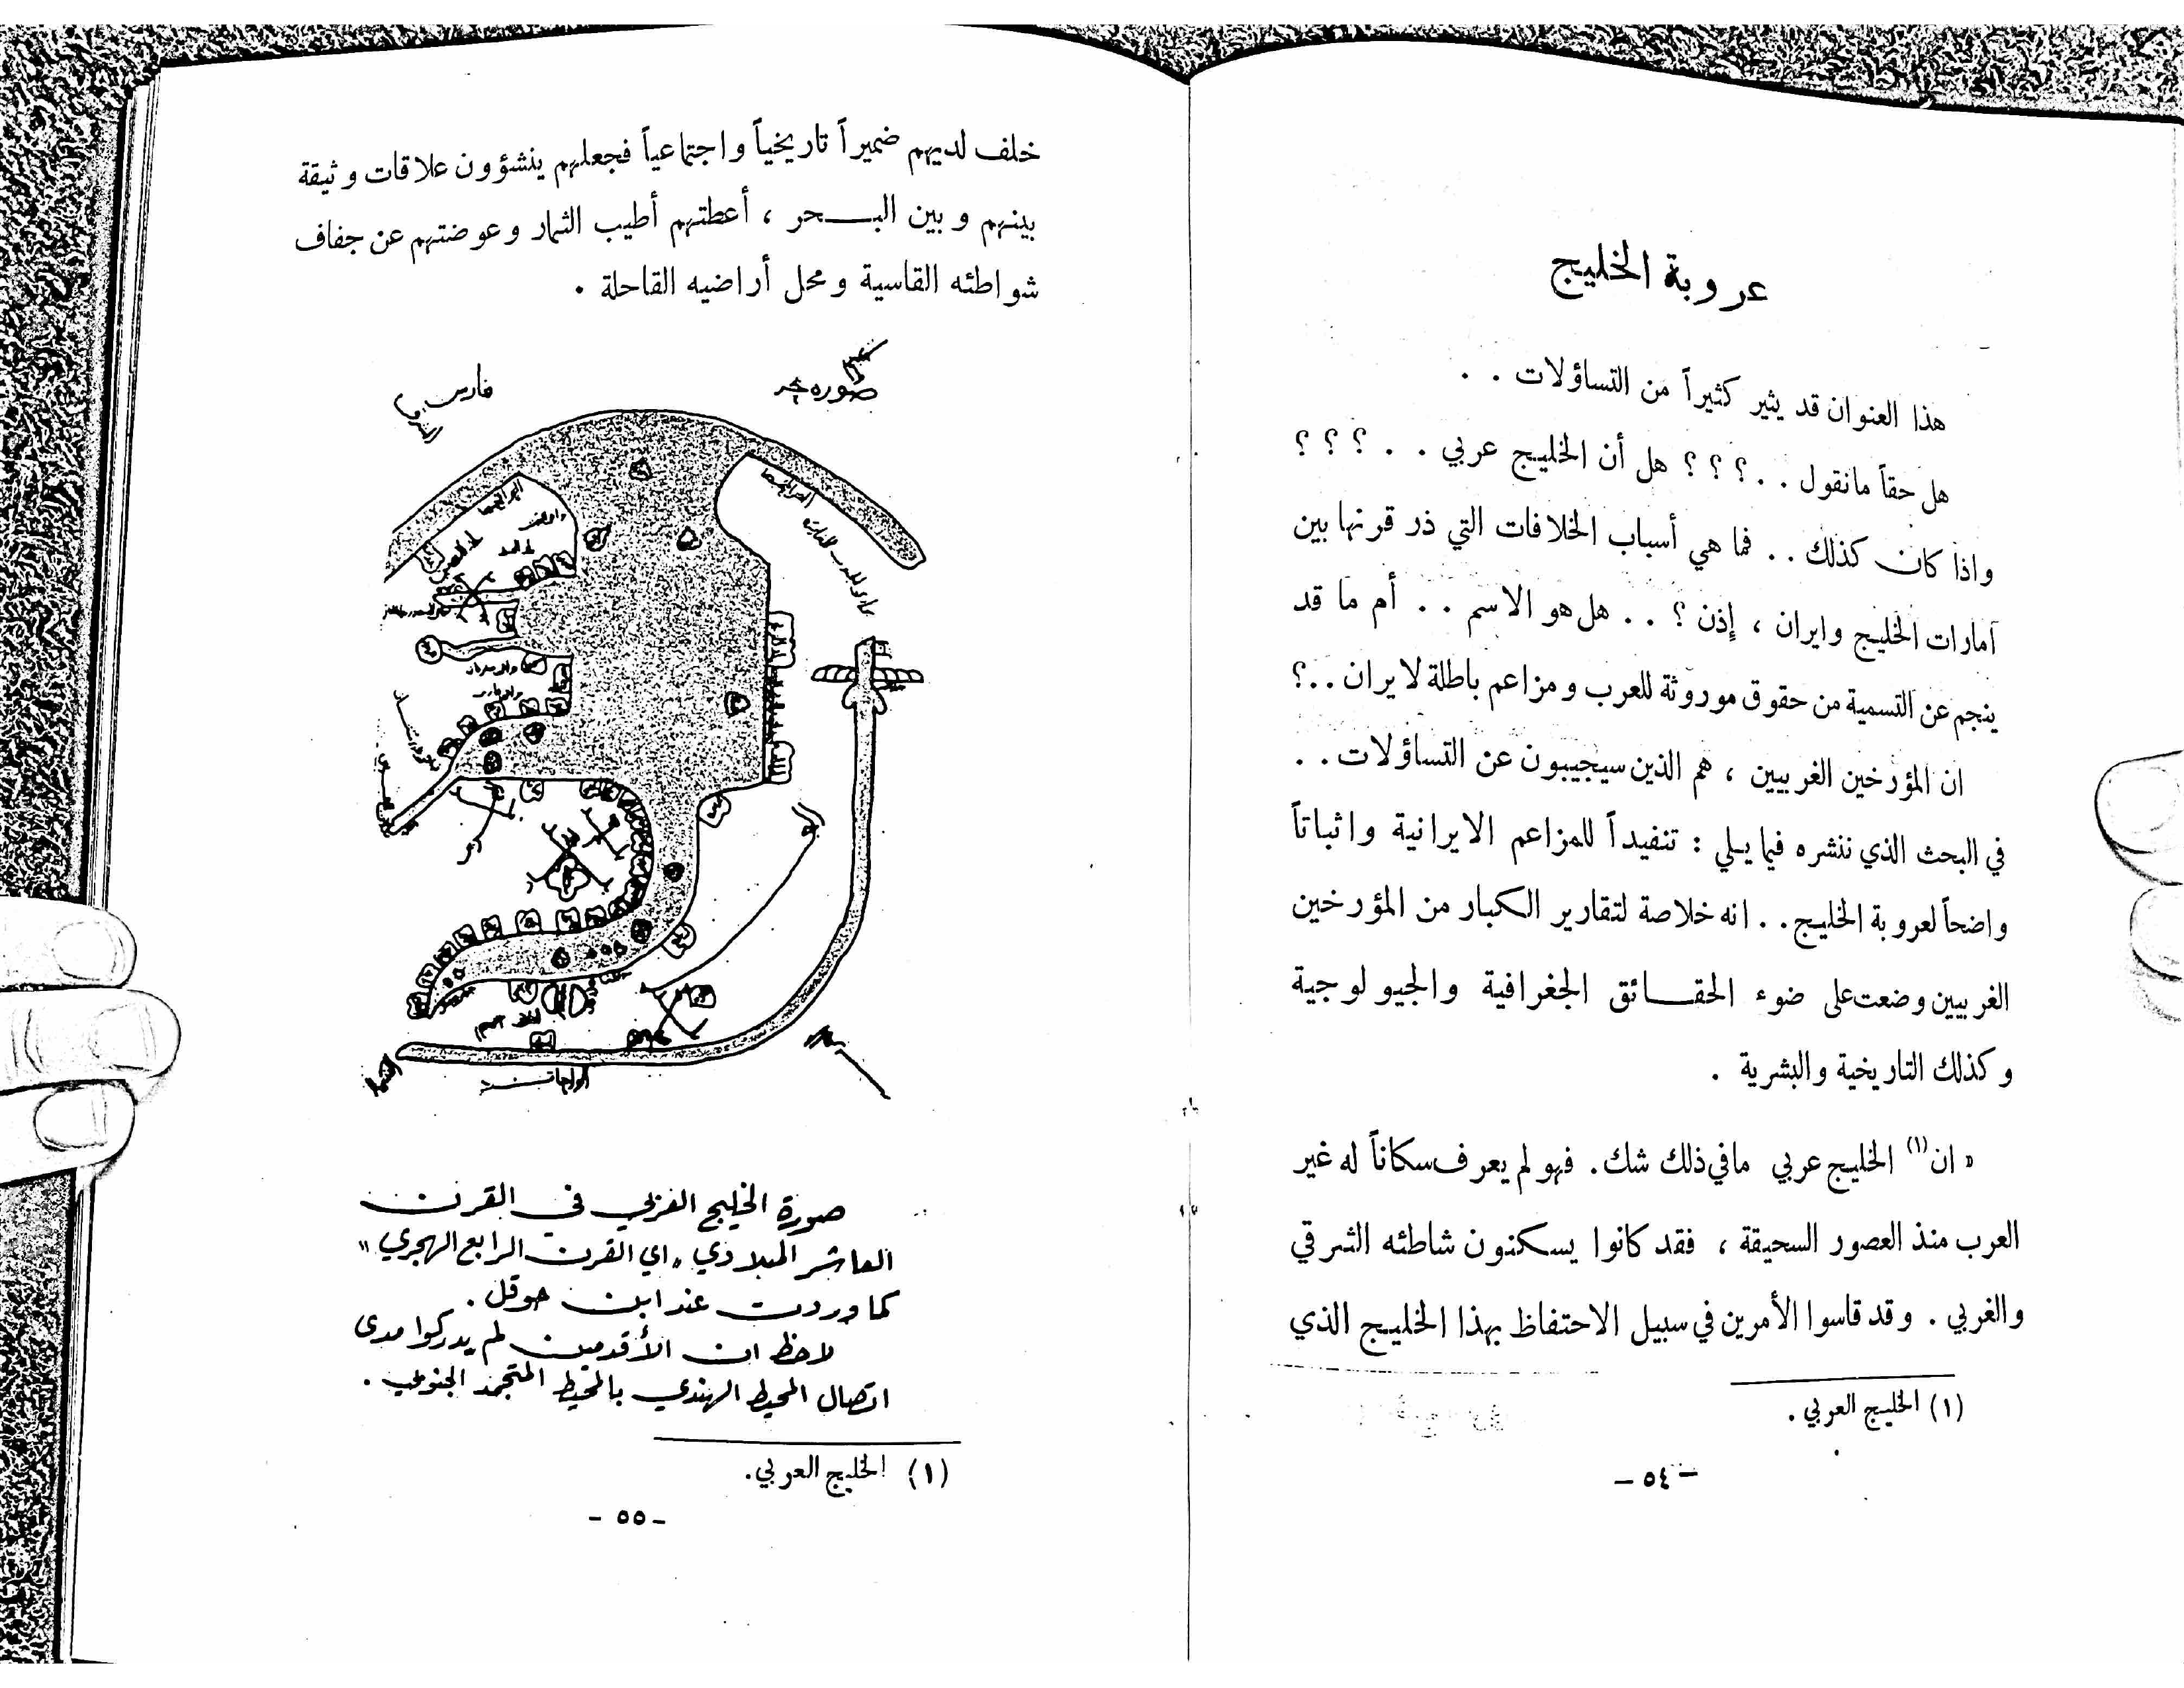 عروبة الخليج
هذا العنوان قد يثير كثيراً من التساؤلات . .
هل حقاً مانقول . . ؟ ؟ ؟ هل أن الخليج عربي . . ؟ ؟ ؟
واذا كان كذلك . . فما هي أسباب الخلافات التي ذر قرنها بين
امارات الخليج وايران ، إذن ؟ . . هل هو الاسم . . أم ما قد
ينجم عن التسمية من حقوق موروثة للعرب ومزاعم باطلة لايران . . ؟
ان المؤرخين الغربيين ، هم الذين سيجيبون عن التساؤلات . .
في البحث الذي ننشره فيما يلي : تنفيداً للمزاعم الايرانية واثباتاً
واضحاً لعروبة الخليج . . انه خلاصة لتقارير الكبار من المؤرخين
الغربيين وضعت على ضوء الحقائق الجغرافية والجيولوجية
وكذلك التاريخية والبشرية .
« ان (١) الخليج عربي مافي ذلك شك . فهو لم يعرف سكاناً له غير
العرب منذ العصور السحيقة ، فقد كانوا يسكنون شاطئه الشرقي
والغربي . وقد قاسوا الأمرين في سبيل الاحتفاظ بهذا الخليج الذي
(١) الخليج العربي .
– ٥٤ –
خلف لديهم ضميراً تاريخياً واجتماعياً فجعلهم ينشؤون علاقات وثيقة
بينهم وبين البحر ، أعطتهم أطيب الثمار وعوضتهم عن جفاف
شواطئه القاسية ومحل أراضيه القاحلة .
صوره بحر
فارس
صورة الخليج العربي في القرن
العاشر الميلادي « اي القرن الرابع الهجري "
كما وردت عند ابن حوقل .
لاحظ ان الأقدمين لم يدركوا مدى
اتصال المحيط الهندي بالمحيط المتجمد الجنوبي .
(١) الخليج العربي .
– ٥٥ –